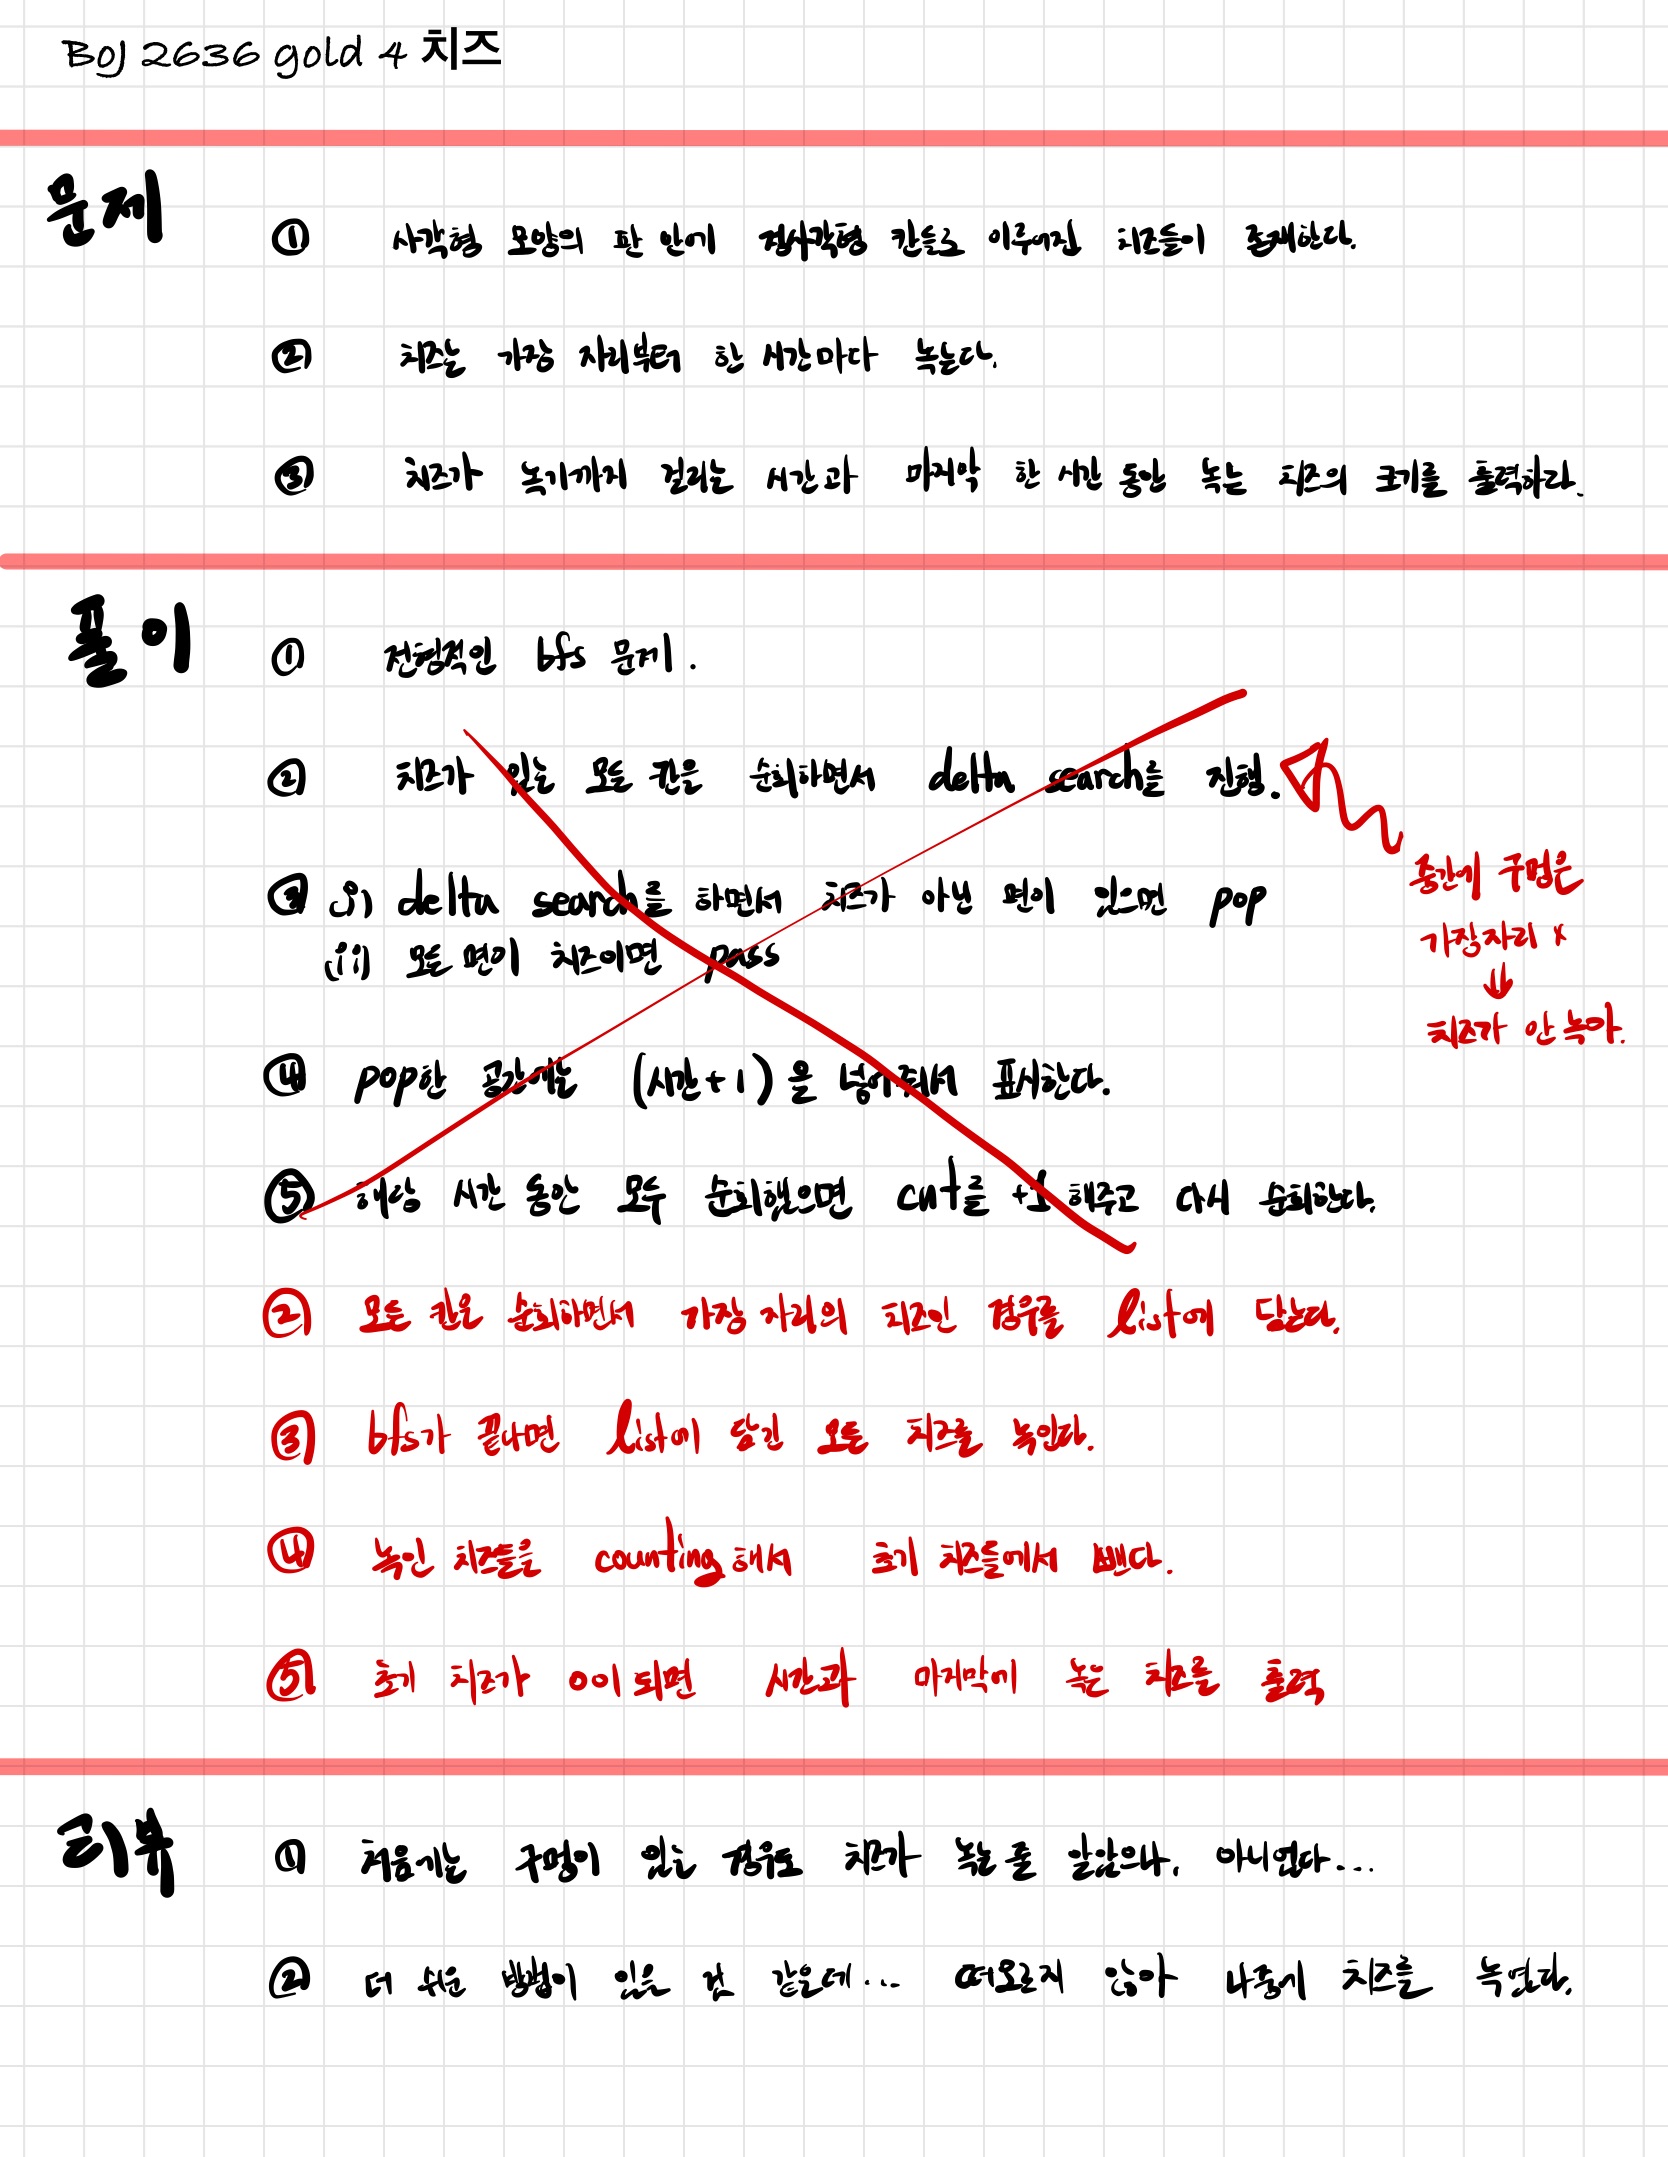 BOJ 2636 gold 4 치즈
문제
① 사각형 모양의 판 안에 정사각형 칸들로 이루어진 치즈들이 존재한다.
② 치즈는 가장 자리부터 한 시간마다 녹는다.
③ 치즈가 녹기까지 걸리는 시간과 마지막 한 시간 동안 녹는 치즈의 크기를 출력하라.
풀이
① 전형적인 bfs 문제.
② 치즈가 있는 모든 칸을 순회하면서 delta search를 진행.
중간에 구멍은
가장자리 x
↓
치즈가 안 녹아.
③ i) delta search를 하면서 치즈가 아닌 면이 있으면 pop
ii) 모든 면이 치즈이면 pass
④ pop한 공간에는 (시간+1)을 넣어줘서 표시한다.
⑤ 해당 시간 동안 모두 순회했으면 cnt를 +1 해주고 다시 순회한다.
② 모든 칸을 순회하면서 가장 자리의 치즈인 경우를 list에 담는다.
③ bfs가 끝나면 list에 담긴 모든 치즈를 녹인다.
④ 녹인 치즈들을 counting해서 초기 치즈들에서 뺀다.
⑤ 초기 치즈가 0이 되면 시간과 마지막에 녹는 치즈를 출력
리뷰
① 처음에는 구멍이 있는 경우도 치즈가 녹는 줄 알았으나, 아니었다...
② 더 쉬운 방법이 있을 것 같은데... 떠오르지 않아 나중에 치즈를 녹였다.